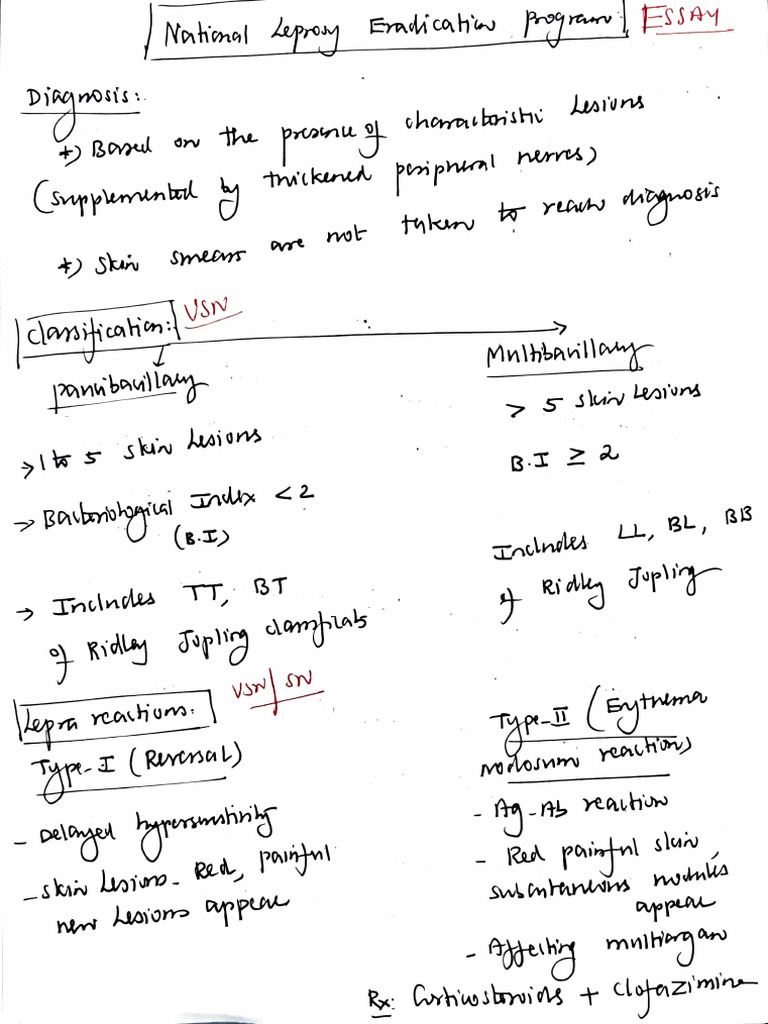 National Leprosy Eradication Program: ESSAY
Diagnosis:
*) Based on the presence of characteristic Lesions
(supplemented by thickened peripheral nerves)
*) Skin smears are not taken to reach diagnosis
Classification: VSN
Paucibacillary
→ 1 to 5 skin Lesions
→ Bacteriological Index < 2
(B.I)
→ Includes TT, BT
of Ridley Jopling classificats
Multibacillary
> 5 skin Lesions
B.I ≥ 2
Includes LL, BL, BB
of Ridley Jopling
Lepra reactions: VSN/SN
Type-I (Reversal)
- Delayed hypersensitivity
- Skin Lesions - Red, painful
new Lesions appear
Type-II (Erythema
nodosum reaction)
- Ag-Ab reaction
- Red painful skin,
subcutaneous nodules
appear
- Affecting multiorgan
Rx: Corticosteroids + Clofazimine